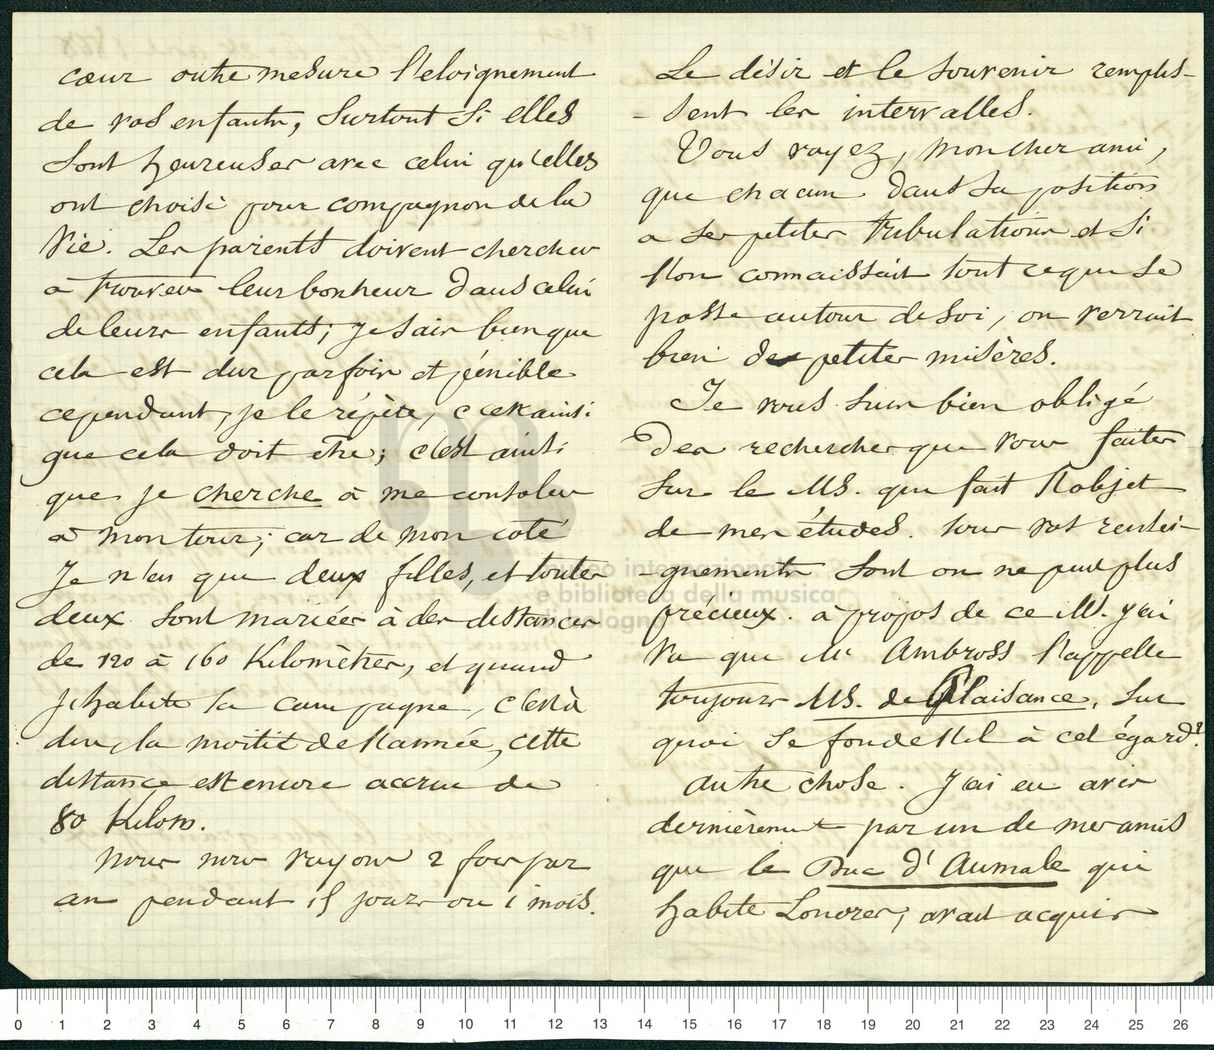 cœur outre mesure l'eloignement
de vos enfants, surtout si elles
sont heureuses avec celui qu'elles
ont choisi pour compagnon de la
vie. Les parents doivent chercher
a trouver leur bonheur dans celui
de leurs enfants; je sais bien que
cela est dur parfois et pénible
cependant, je le répète, c'est ainsi
que cela doit etre; c'est ainsi
que je cherche à me consoler
à mon tour; car de mon coté
Je n'ai que deux filles, et toutes
deux sont mariées à des distances
de 120 à 160 Kilomètres, et quand
j'habite la campagne, c'est à
dire, la moitié de l'année, cette
distance est encore accrue de
80 Kilom.
Nous nous voyons 2 fois par
an pendant 15 jours ou 1 mois.
Le désir et le souvenir remplis-
- sent les intervalles.
Vous voyez, mon cher ami,
que chacun dans sa position
a ses petites tribulations et si
l'on connaissait tout ce que se
passe autour de soi, on verrait
bien des petites misères.
Je vous suis bien obligé
des recherches que vous faites
sur le MS. qui fait l'objet
de mes études. tous vos rensei-
- gnements sont on ne peut plus
précieux. à propos de ce MS. j'ai
vu que Mr Ambross l'appelle
toujours MS. de Plaisance, sur
quoi se fonde t'il à cet égard?
autre chose. J'ai eu avis
dernièrement par un de mes amis
que le Duc d'Aumale qui
habite Londres, avait acquis
museo internazionale
e biblioteca della musica
di bologna
0 1 2 3 4 5 6 7 8 9 10 11 12 13 14 15 16 17 18 19 20 21 22 23 24 25 26